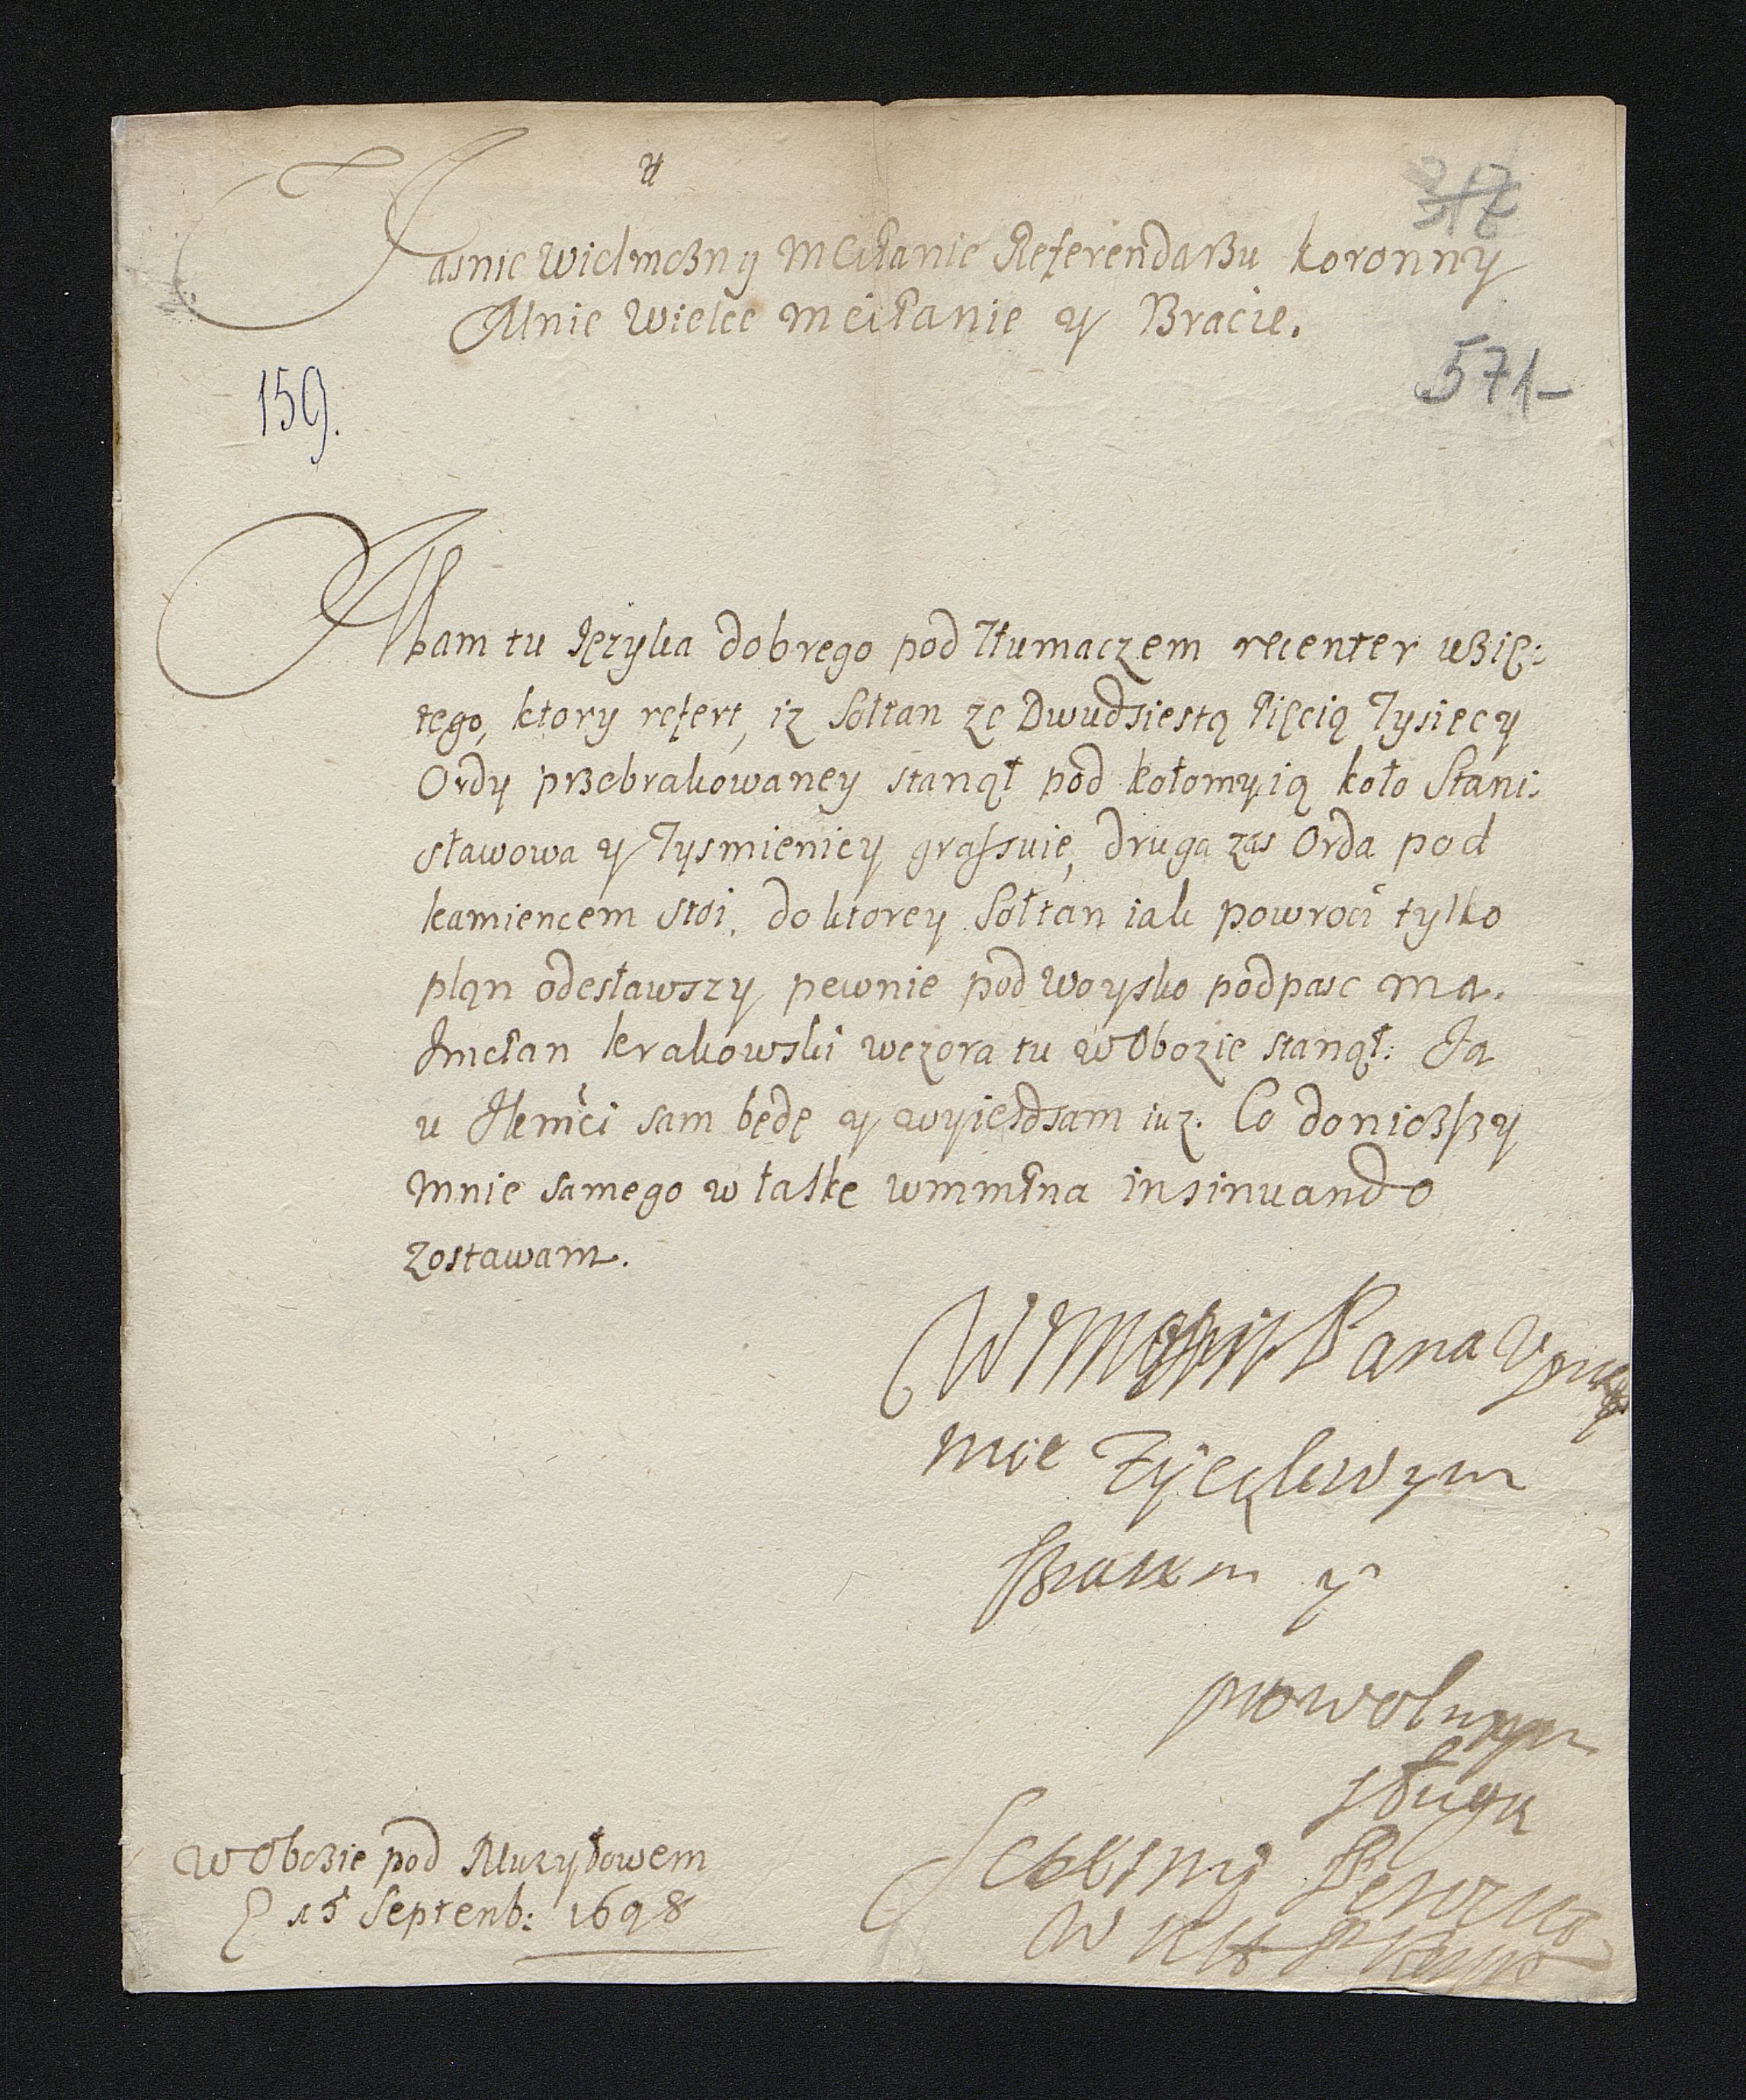 317
Jasnie Wielmozny MCiPanie Referendarzu Koronny
Mnie Wielce mciPanie y Bracie.
159.
571
Mam tu Języka dobrego pod Tłumaczem recenter wzię:
tego, ktory refert, iz Sołtan ze Dwudziestą Pięcią Tysięcy
Ordy przebrakowaney stanął pod Kołomyią koło Stani:
sławowa y Tysmienicy grassuie, druga zas Orda pod
Kamiencem stoi, do ktorey Sołtan iak powroci tylko
plon odesławszy, pewnie pod Woysko podpasc ma.
JmcPan Krakowski wczora tu w Obozie stanął: Ja
u Jkmci sam będę y wyiezdzam iuz. Co donioszszy
mnie samego w łaskę wmmPna insinuando
zostawam.
Pana
mie Zyczliwym
Bratem y
powolnym
sługą
W Obozie pod Mużyłowem
15 Septenb: 1698